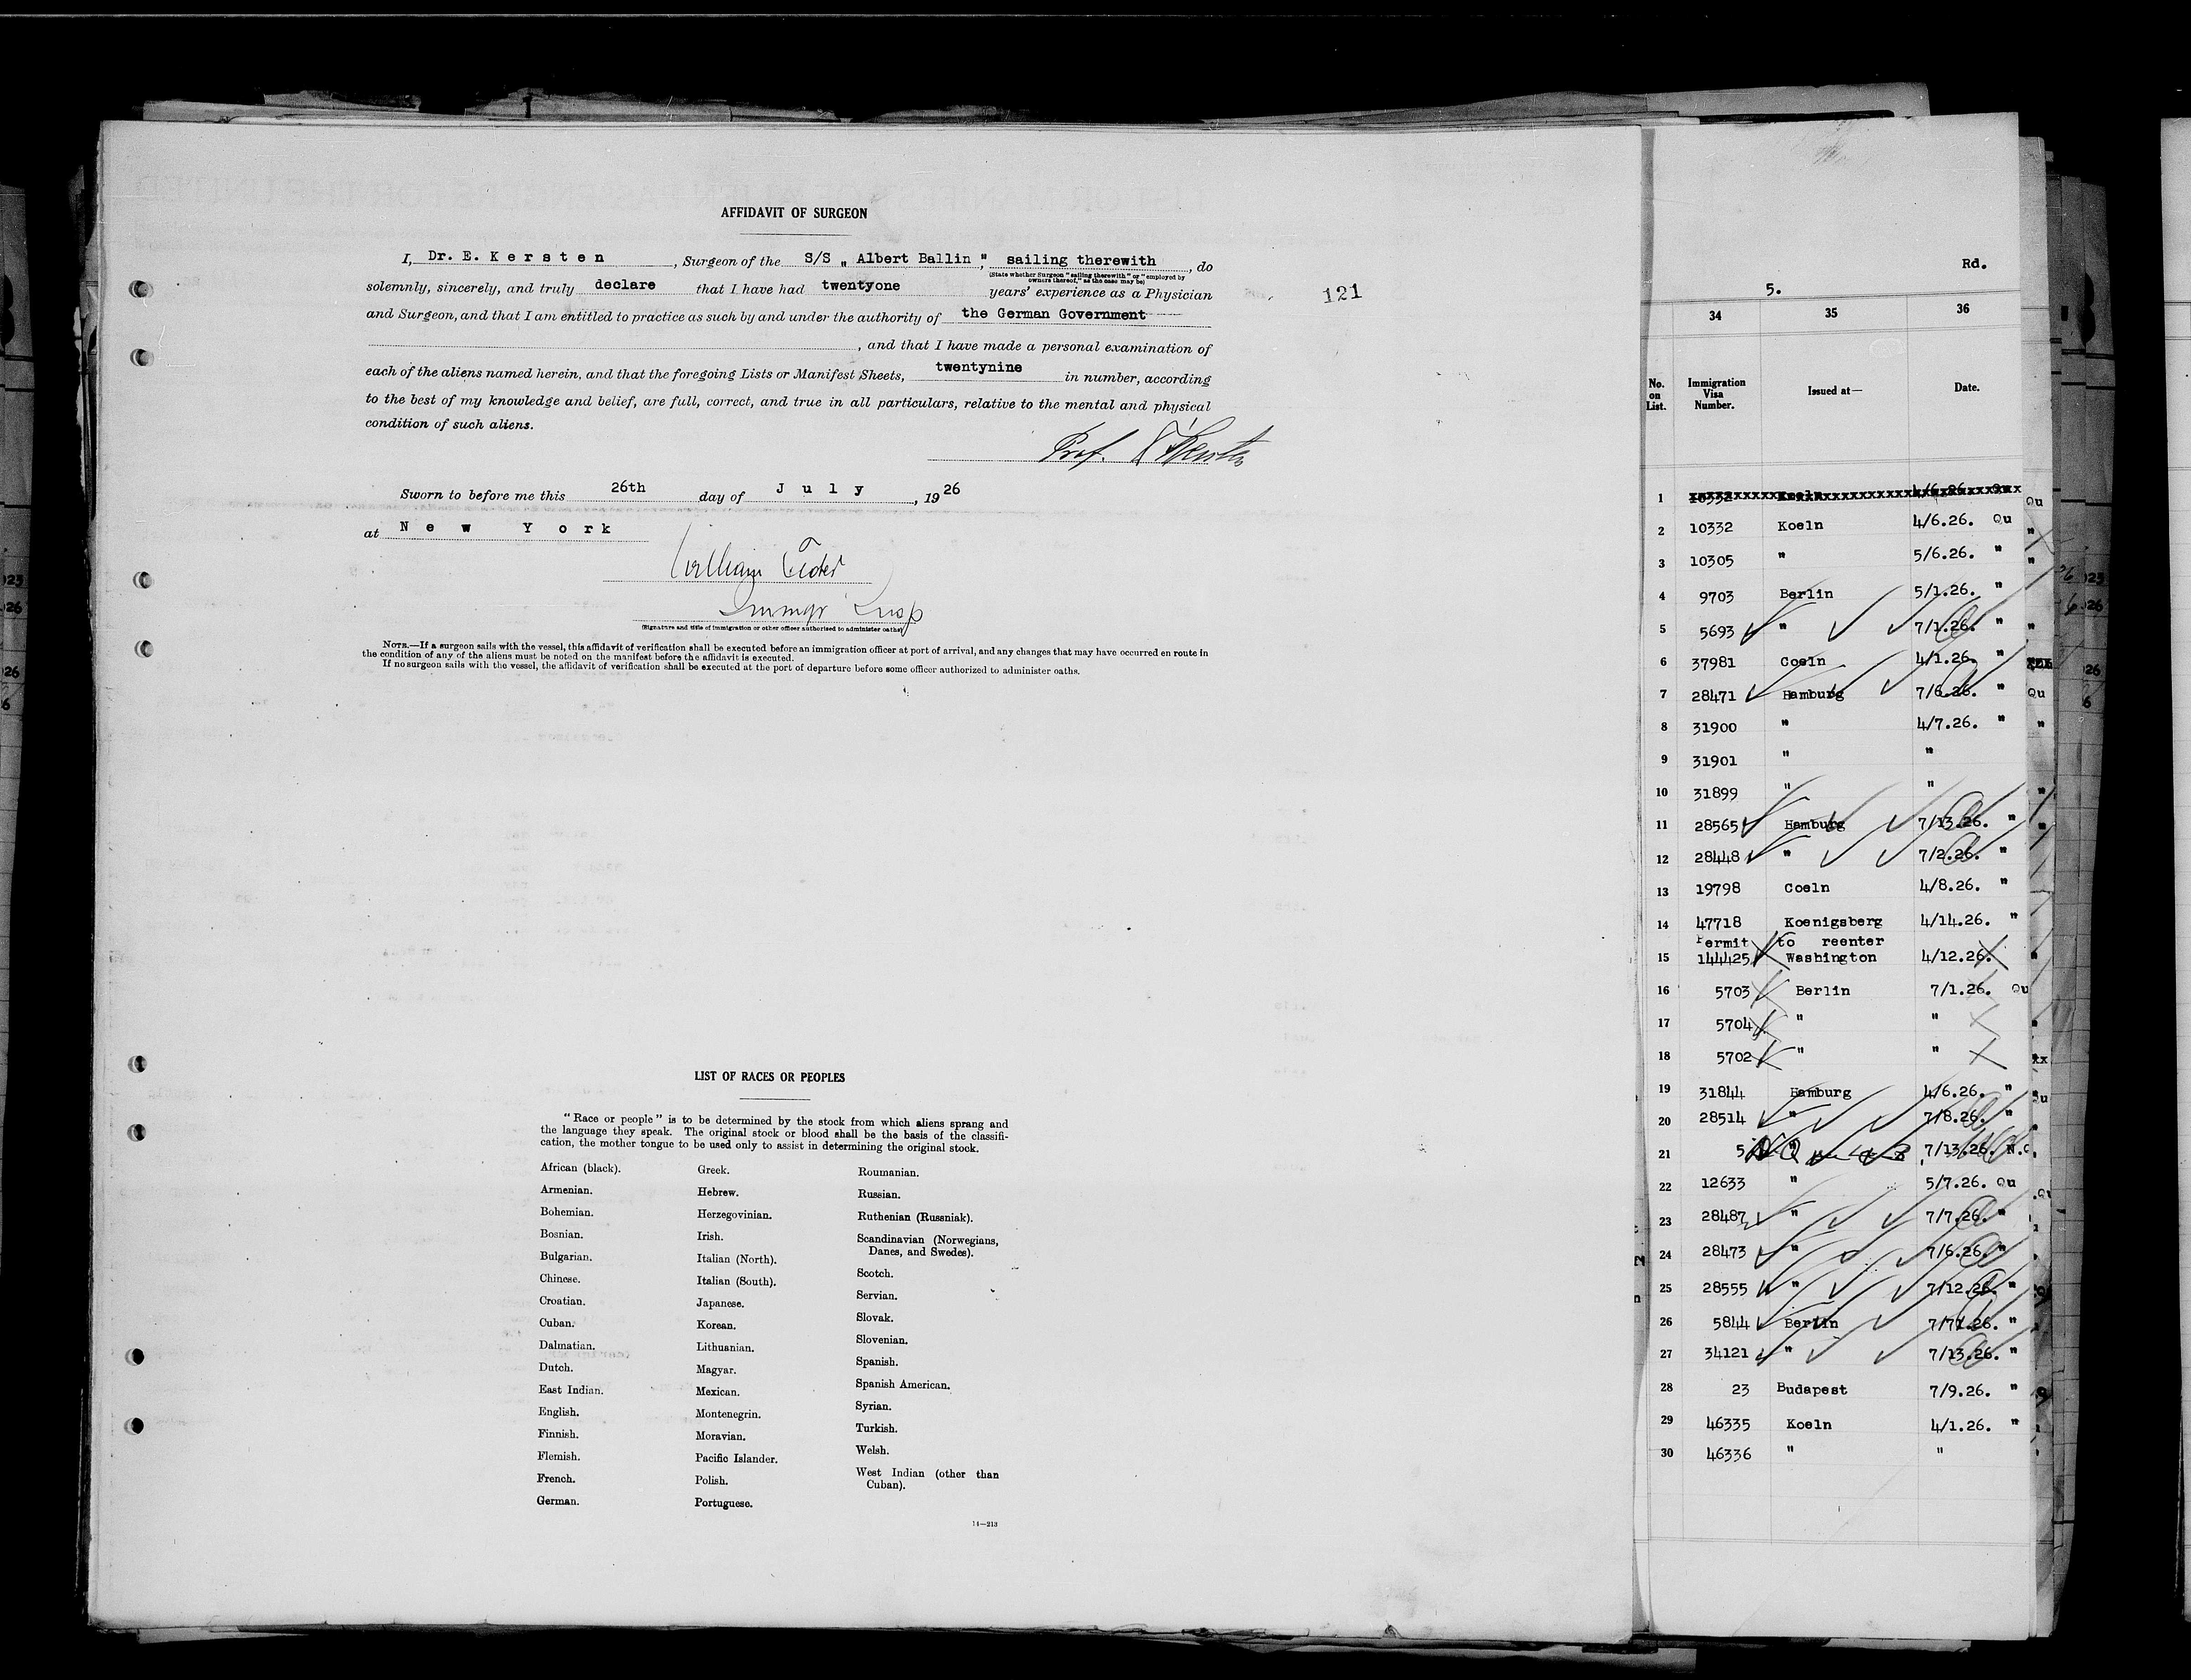 AFFIDAVIT OF SURGEON
I, Dr. E. K e r s t e n , Surgeon of the S/S „ Albert Ballin " sailing therewith , do
(State whether Surgeon "sailing therewith" or "employed by
owners thereof," as the case may be)
solemnly, sincerely, and truly declare that I have had twentyone years' experience as a Physician
and Surgeon, and that I am entitled to practice as such by and under the authority of the German Government
, and that I have made a personal examination of
each of the aliens named herein, and that the foregoing Lists or Manifest Sheets, twentynine in number, according
to the best of my knowledge and belief, are full, correct, and true in all particulars, relative to the mental and physical
condition of such aliens.
Prof. E Kersten
Sworn to before me this 26th day of J u l y , 19 26
at N e w Y o r k
William
Immgr Insp
(Signature and title of immigration or other officer authorized to administer oaths)
NOTE.—If a surgeon sails with the vessel, this affidavit of verification shall be executed before an immigration officer at port of arrival, and any changes that may have occurred en route in
the condition of any of the aliens must be noted on the manifest before the affidavit is executed.
If no surgeon sails with the vessel, the affidavit of verification shall be executed at the port of departure before some officer authorized to administer oaths.
121
LIST OF RACES OR PEOPLES
"Race or people" is to be determined by the stock from which aliens sprang and
the language they speak. The original stock or blood shall be the basis of the classifi-
cation, the mother tongue to be used only to assist in determining the original stock.
African (black).
Armenian.
Bohemian.
Bosnian.
Bulgarian.
Chinese.
Croatian.
Cuban.
Dalmatian.
Dutch.
East Indian.
English.
Finnish.
Flemish.
French.
German.
Greek.
Hebrew.
Herzegovinian.
Irish.
Italian (North).
Italian (South).
Japanese.
Korean.
Lithuanian.
Magyar.
Mexican.
Montenegrin.
Moravian.
Pacific Islander.
Polish.
Portuguese.
Roumanian.
Russian.
Ruthenian (Russniak).
Scandinavian (Norwegians,
Danes, and Swedes).
Scotch.
Servian.
Slovak.
Slovenian.
Spanish.
Spanish American.
Syrian.
Turkish.
Welsh.
West Indian (other than
Cuban).
14—213
Rd.
5.
34 35 36
No. on List. Immigration Visa Number. Issued at— Date.
1 10332 Koeln 4/6.26. Qu
2 10332 Koeln 4/6.26. Qu
3 10305 " 5/6.26. "
4 9703 Berlin 5/1.26. "
5 5693 " 7/1.26. "
6 37981 Coeln 4/1.26. "
7 28471 Hamburg 7/6.26. " Qu
8 31900 " 4/7.26. " "
9 31901 " "
10 31899 " "
11 28565 Hamburg 7/13.26. "
12 28448 " 7/2.26. "
13 19798 Coeln 4/8.26. "
14 47718 Koenigsberg 4/14.26. "
Permit to reenter
15 144425 Washington 4/12.26.
16 5703 Berlin 7/1.26. Qu
17 5704 " "
18 5702 " "
19 31844 Hamburg 4/6.26. "
20 28514 " 7/8.26. "
21 5 " 7/13.26. N.
22 12633 " 5/7.26. Qu
23 28487 " 7/7.26. "
24 28473 " 7/6.26. "
25 28555 " 7/12.26. "
26 5844 Berlin 7/7.26. "
27 34121 " 7/13.26. "
28 23 Budapest 7/9.26. "
29 46335 Koeln 4/1.26. "
30 46336 " "